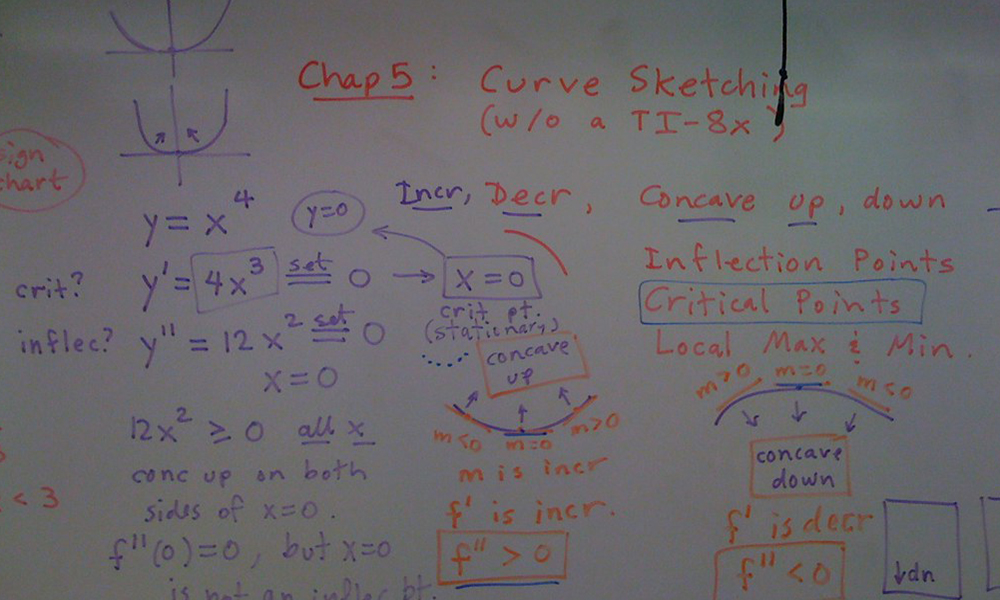 Chap 5: Curve Sketching
(w/o a TI-8x)
sign
chart
Incr, Decr, Concave up, down
Inflection Points
Critical Points
Local Max & Min.
y = x⁴
y=0
crit? y' = 4x³ set = 0 → x = 0
crit pt.
(stationary)
inflec? y'' = 12x² set = 0
x = 0
12x² ≥ 0 all x
conc up on both
sides of x=0.
f''(0)=0, but x=0
is not an inflec pt.
< 3
concave
up
m<0 m=0 m>0
m is incr
f' is incr.
f'' > 0
m>0 m=0 m<0
concave
down
f' is decr
f'' < 0
↓dn